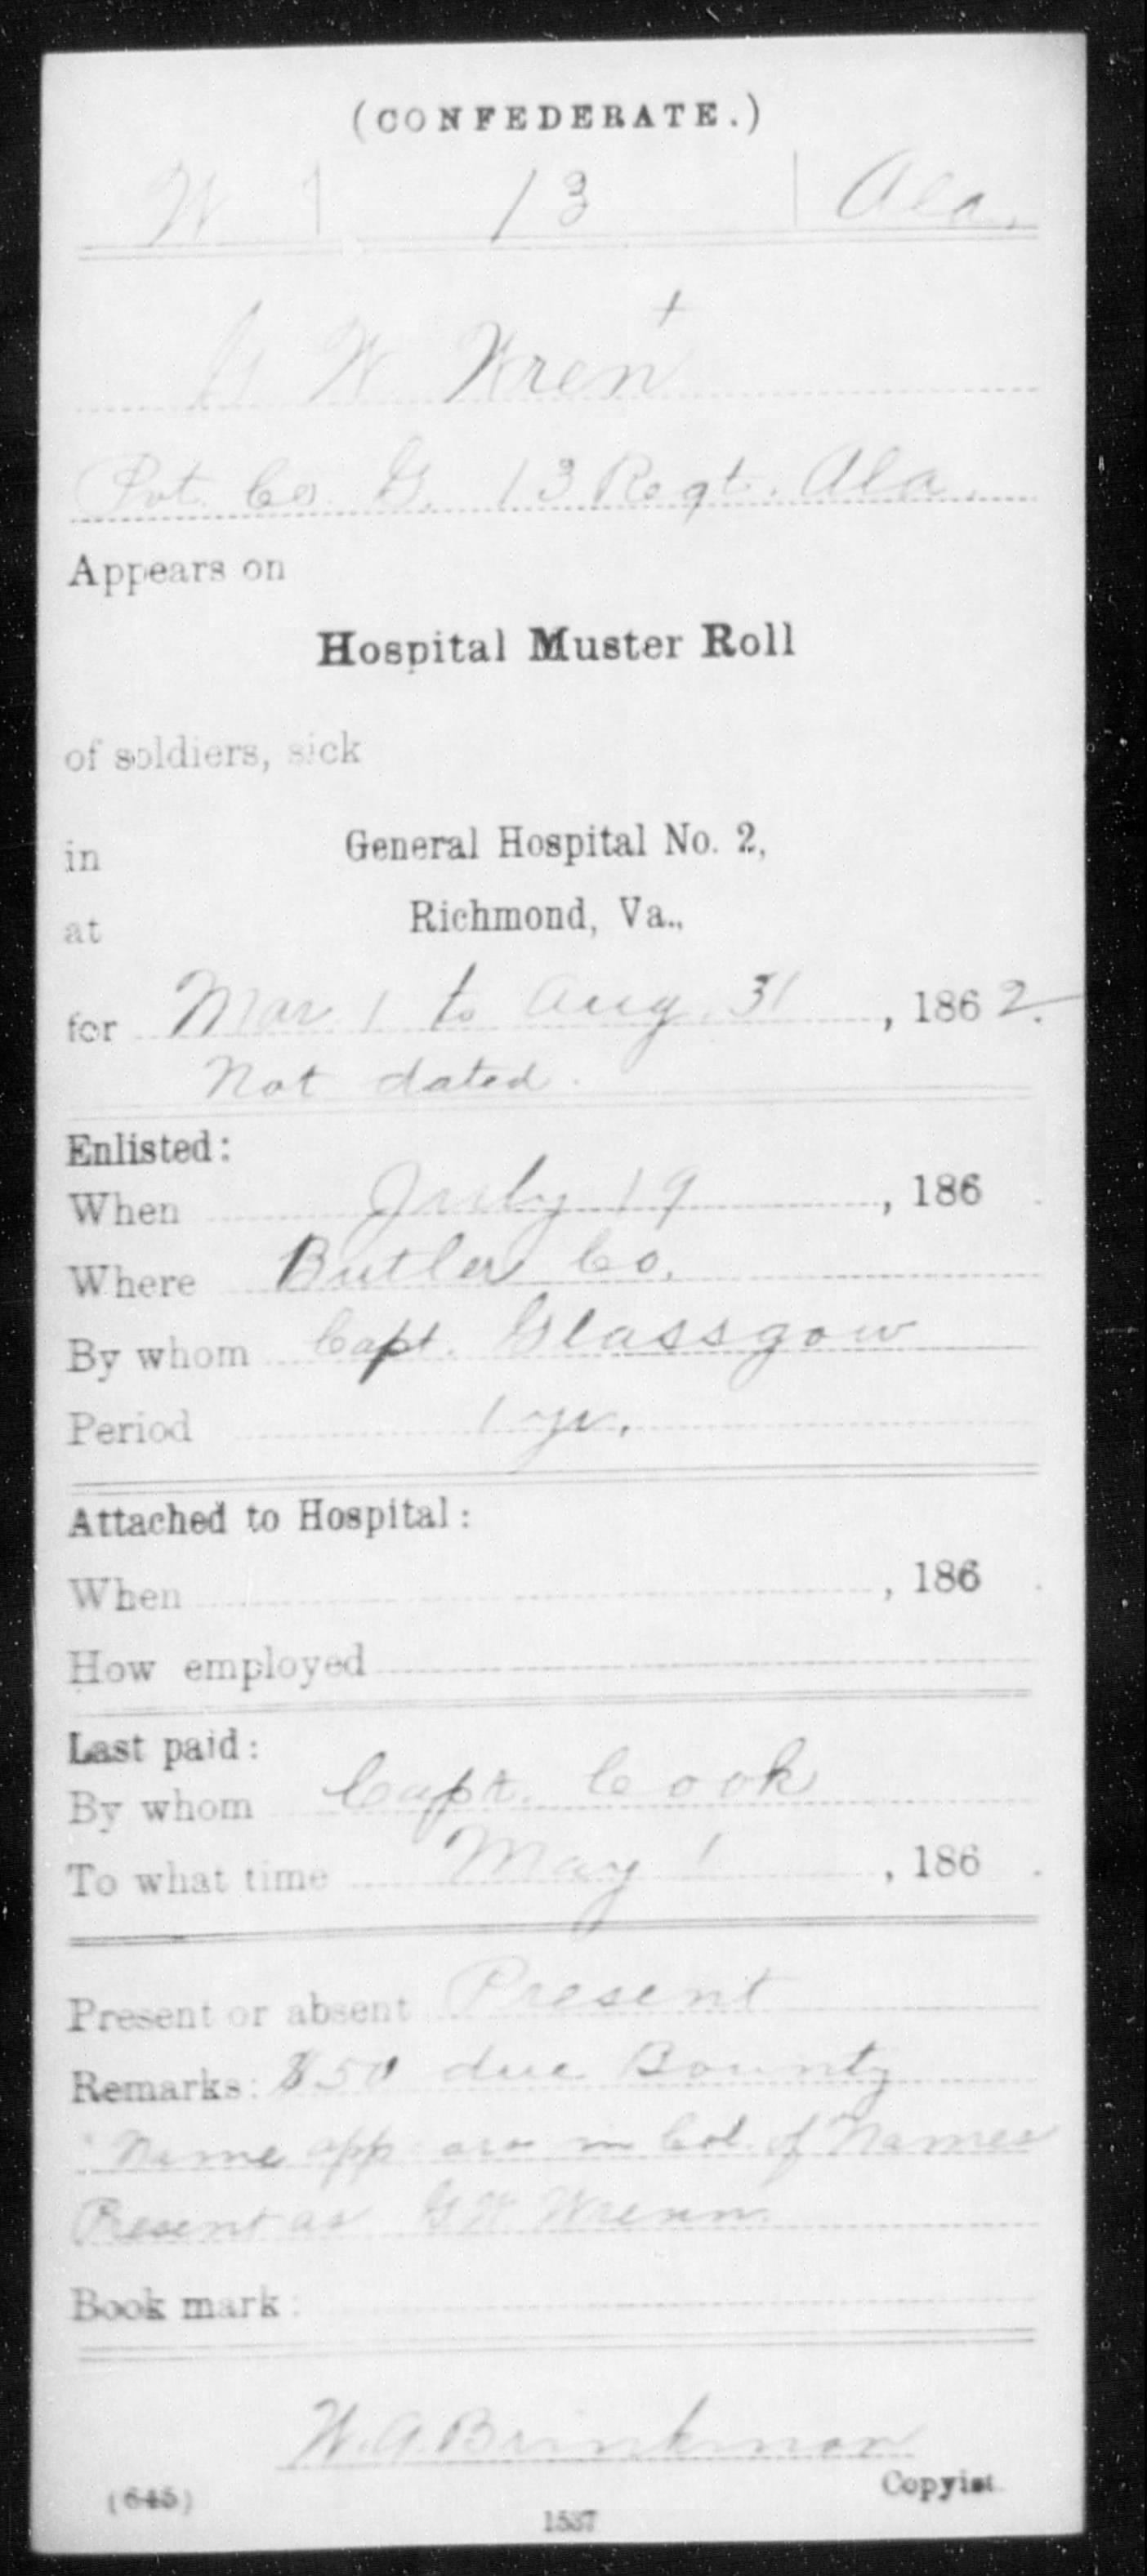 (CONFEDERATE.)
W | 13 | Ala.
G W Wren +
Pvt. Co. G. 13 Regt. Ala.
Appears on
Hospital Muster Roll
of soldiers, sick
in General Hospital No. 2,
at Richmond, Va.,
for Mar 1 to Aug. 31, 1862.
Not dated.
Enlisted:
When July 19, 186 .
Where Butler Co.
By whom Capt. Glassgow
Period 1 yr.
Attached to Hospital:
When , 186 .
How employed
Last paid:
By whom Capt. Cook
To what time May 1, 186 .
Present or absent Present
Remarks: $50 due Bounty
Name appears in Col. of Names
Present as G W Wrenn.
Book mark:
W. A. Brinkman
Copyist.
(645)
1537